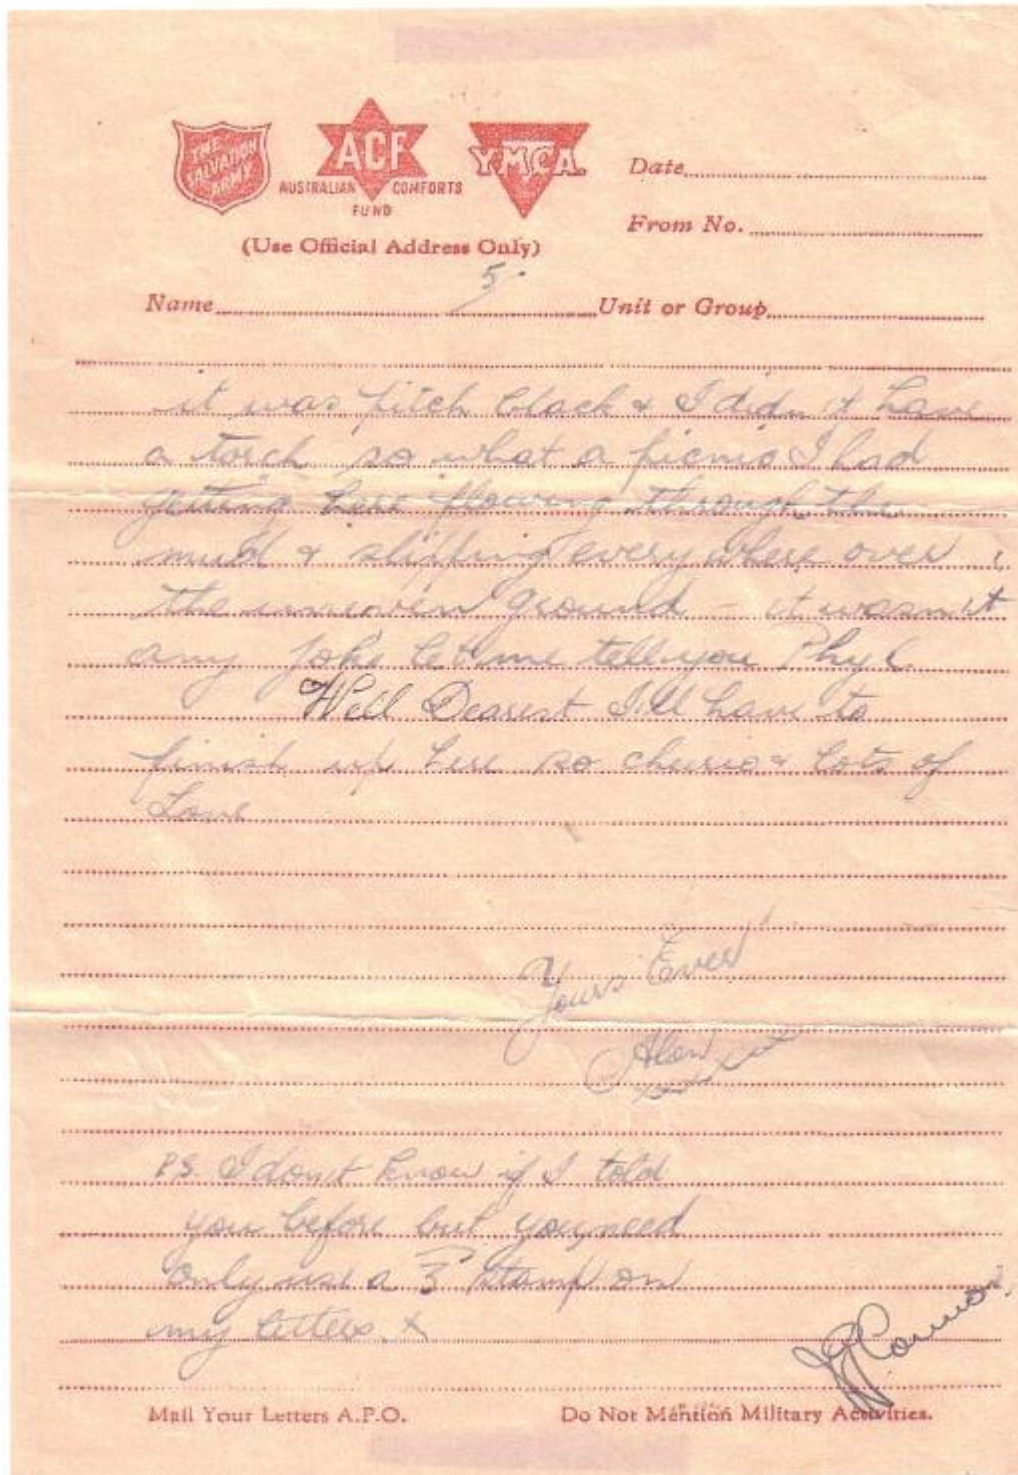 THE SALVATION ARMY
ACF
AUSTRALIAN COMFORTS FUND
YMCA
Date
From No.
(Use Official Address Only)
5.
Name Unit or Group
it was pitch black & I didn't have
a torch so what a picnic I had
getting here through the
mud & slipping everywhere over
the uneven ground - it wasn't
any joke let me tell you Phyl
Well Dearest I'll have to
finish up here so cheerio & lots of
Love
Yours Ever
Alan
P.S. I don't know if I told
you before but you need
only use a 3 stamp on
my letters. x
Mail Your Letters A.P.O. Do Not Mention Military Activities.